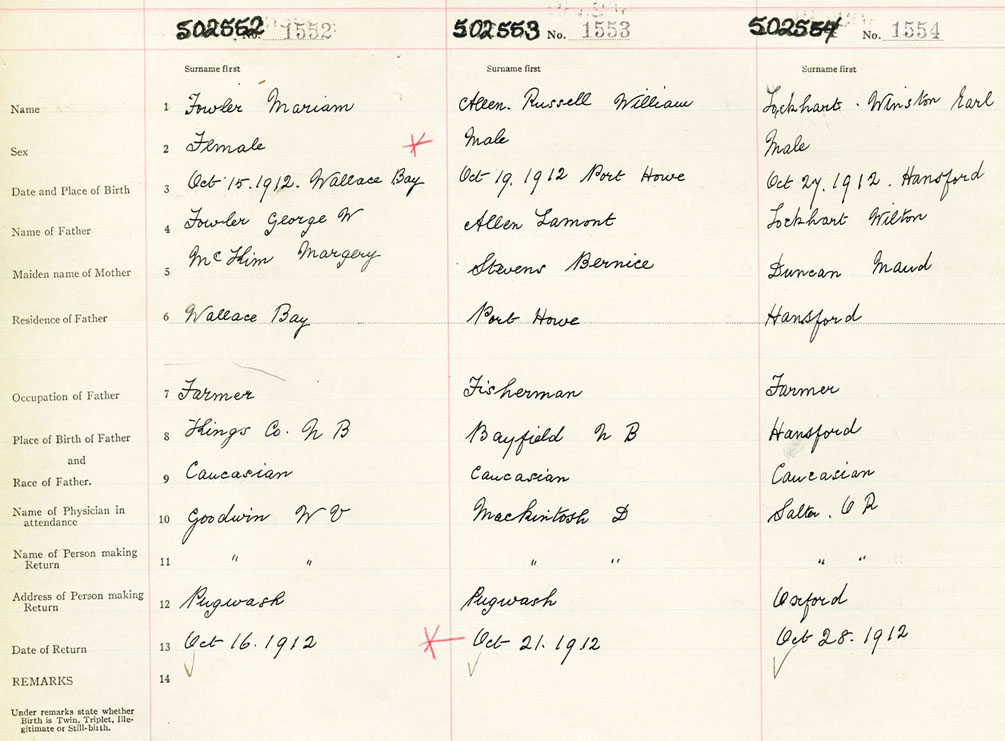 502552 No. 1552 502553 No. 1553 502554 No. 1554
Surname first Surname first Surname first
Name 1 Fowler Mariam Allen. Russell William Lockhart. Winston Earl
Sex 2 Female Male Male
Date and Place of Birth 3 Oct 15. 1912. Wallace Bay Oct 19. 1912 Port Howe Oct 27. 1912. Hansford
Name of Father 4 Fowler George W Allen Lamont Lockhart Wilton
Maiden name of Mother 5 McKim Margery Stevens Bernice Duncan Maud
Residence of Father 6 Wallace Bay Port Howe Hansford
Occupation of Father 7 Farmer Fisherman Farmer
Place of Birth of Father 8 Kings Co. N B Bayfield N B Hansford
and
Race of Father. 9 Caucasian Caucasian Caucasian
Name of Physician in
attendance 10 Goodwin W V Mackintosh D Salter. C R
Name of Person making
Return 11 " " " " " "
Address of Person making
Return 12 Pugwash Pugwash Oxford
Date of Return 13 Oct 16. 1912 Oct 21. 1912 Oct 28. 1912
REMARKS 14
Under remarks state whether
Birth is Twin, Triplet, Ille-
gitimate or Still-birth.